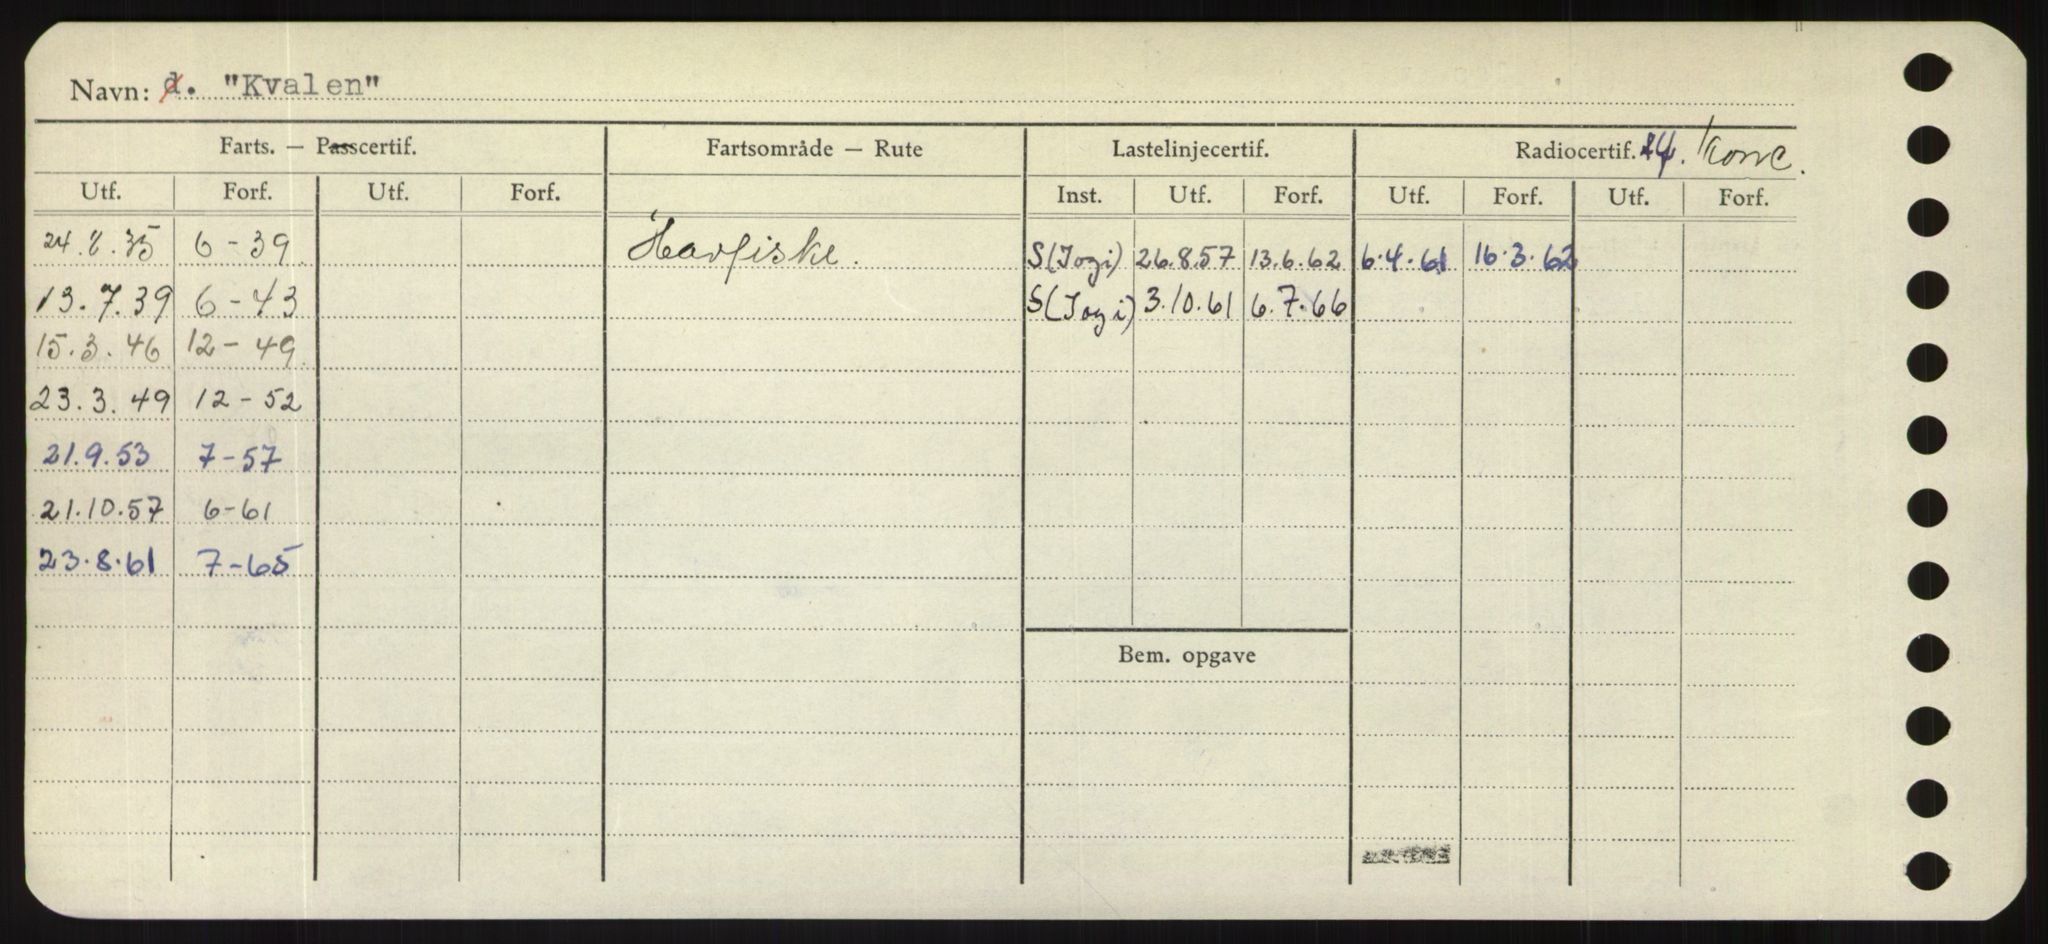 Navn: d. "Kvalen"
Farts. — Passcertif. Fartsområde — Rute Lastelinjecertif. Radiocertif.
Utf. Forf. Utf. Forf. Inst. Utf. Forf. Utf. Forf. Utf. Forf.
24.8.35 6-39 Havfiske. S(Jogi) 26.8.57 13.6.62 6.4.61 16.3.62
13.7.39 6-43 S(Jogi) 3.10.61 6.7.66
15.3.46 12-49
23.3.49 12-52
21.9.53 7-57
21.10.57 6-61
23.8.61 7-65
Bem. opgave